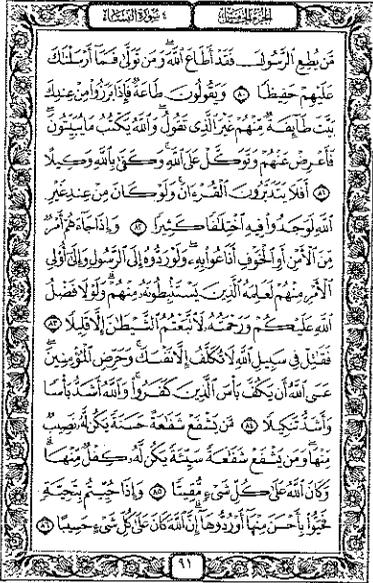 الجزء الخامس
٤ سورة النساء
مَّن يُطِعِ الرَّسُولَ فَقَدْ أَطَاعَ اللَّهَ وَمَن تَوَلَّىٰ فَمَا أَرْسَلْنَاكَ
عَلَيْهِمْ حَفِيظًا ٨٠ وَيَقُولُونَ طَاعَةٌ فَإِذَا بَرَزُوا مِنْ عِندِكَ
بَيَّتَ طَائِفَةٌ مِّنْهُمْ غَيْرَ الَّذِي تَقُولُ وَاللَّهُ يَكْتُبُ مَا يُبَيِّتُونَ
فَأَعْرِضْ عَنْهُمْ وَتَوَكَّلْ عَلَى اللَّهِ وَكَفَىٰ بِاللَّهِ وَكِيلًا
٨١ أَفَلَا يَتَدَبَّرُونَ الْقُرْآنَ وَلَوْ كَانَ مِنْ عِندِ غَيْرِ
اللَّهِ لَوَجَدُوا فِيهِ اخْتِلَافًا كَثِيرًا ٨٢ وَإِذَا جَاءَهُمْ أَمْرٌ
مِّنَ الْأَمْنِ أَوِ الْخَوْفِ أَذَاعُوا بِهِ وَلَوْ رَدُّوهُ إِلَى الرَّسُولِ وَإِلَىٰ أُولِي
الْأَمْرِ مِنْهُمْ لَعَلِمَهُ الَّذِينَ يَسْتَنبِطُونَهُ مِنْهُمْ وَلَوْلَا فَضْلُ
اللَّهِ عَلَيْكُمْ وَرَحْمَتُهُ لَاتَّبَعْتُمُ الشَّيْطَانَ إِلَّا قَلِيلًا ٨٣
فَقَاتِلْ فِي سَبِيلِ اللَّهِ لَا تُكَلَّفُ إِلَّا نَفْسَكَ وَحَرِّضِ الْمُؤْمِنِينَ
عَسَى اللَّهُ أَن يَكُفَّ بَأْسَ الَّذِينَ كَفَرُوا وَاللَّهُ أَشَدُّ بَأْسًا
وَأَشَدُّ تَنكِيلًا ٨٤ مَّن يَشْفَعْ شَفَاعَةً حَسَنَةً يَكُن لَّهُ نَصِيبٌ
مِّنْهَا وَمَن يَشْفَعْ شَفَاعَةً سَيِّئَةً يَكُن لَّهُ كِفْلٌ مِّنْهَا
وَكَانَ اللَّهُ عَلَىٰ كُلِّ شَيْءٍ مُّقِيتًا ٨٥ وَإِذَا حُيِّيتُم بِتَحِيَّةٍ
فَحَيُّوا بِأَحْسَنَ مِنْهَا أَوْ رُدُّوهَا إِنَّ اللَّهَ كَانَ عَلَىٰ كُلِّ شَيْءٍ حَسِيبًا ٨٦
٩١